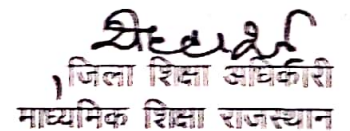 जिला शिक्षा अधिकारी
माध्यमिक शिक्षा राजस्थान